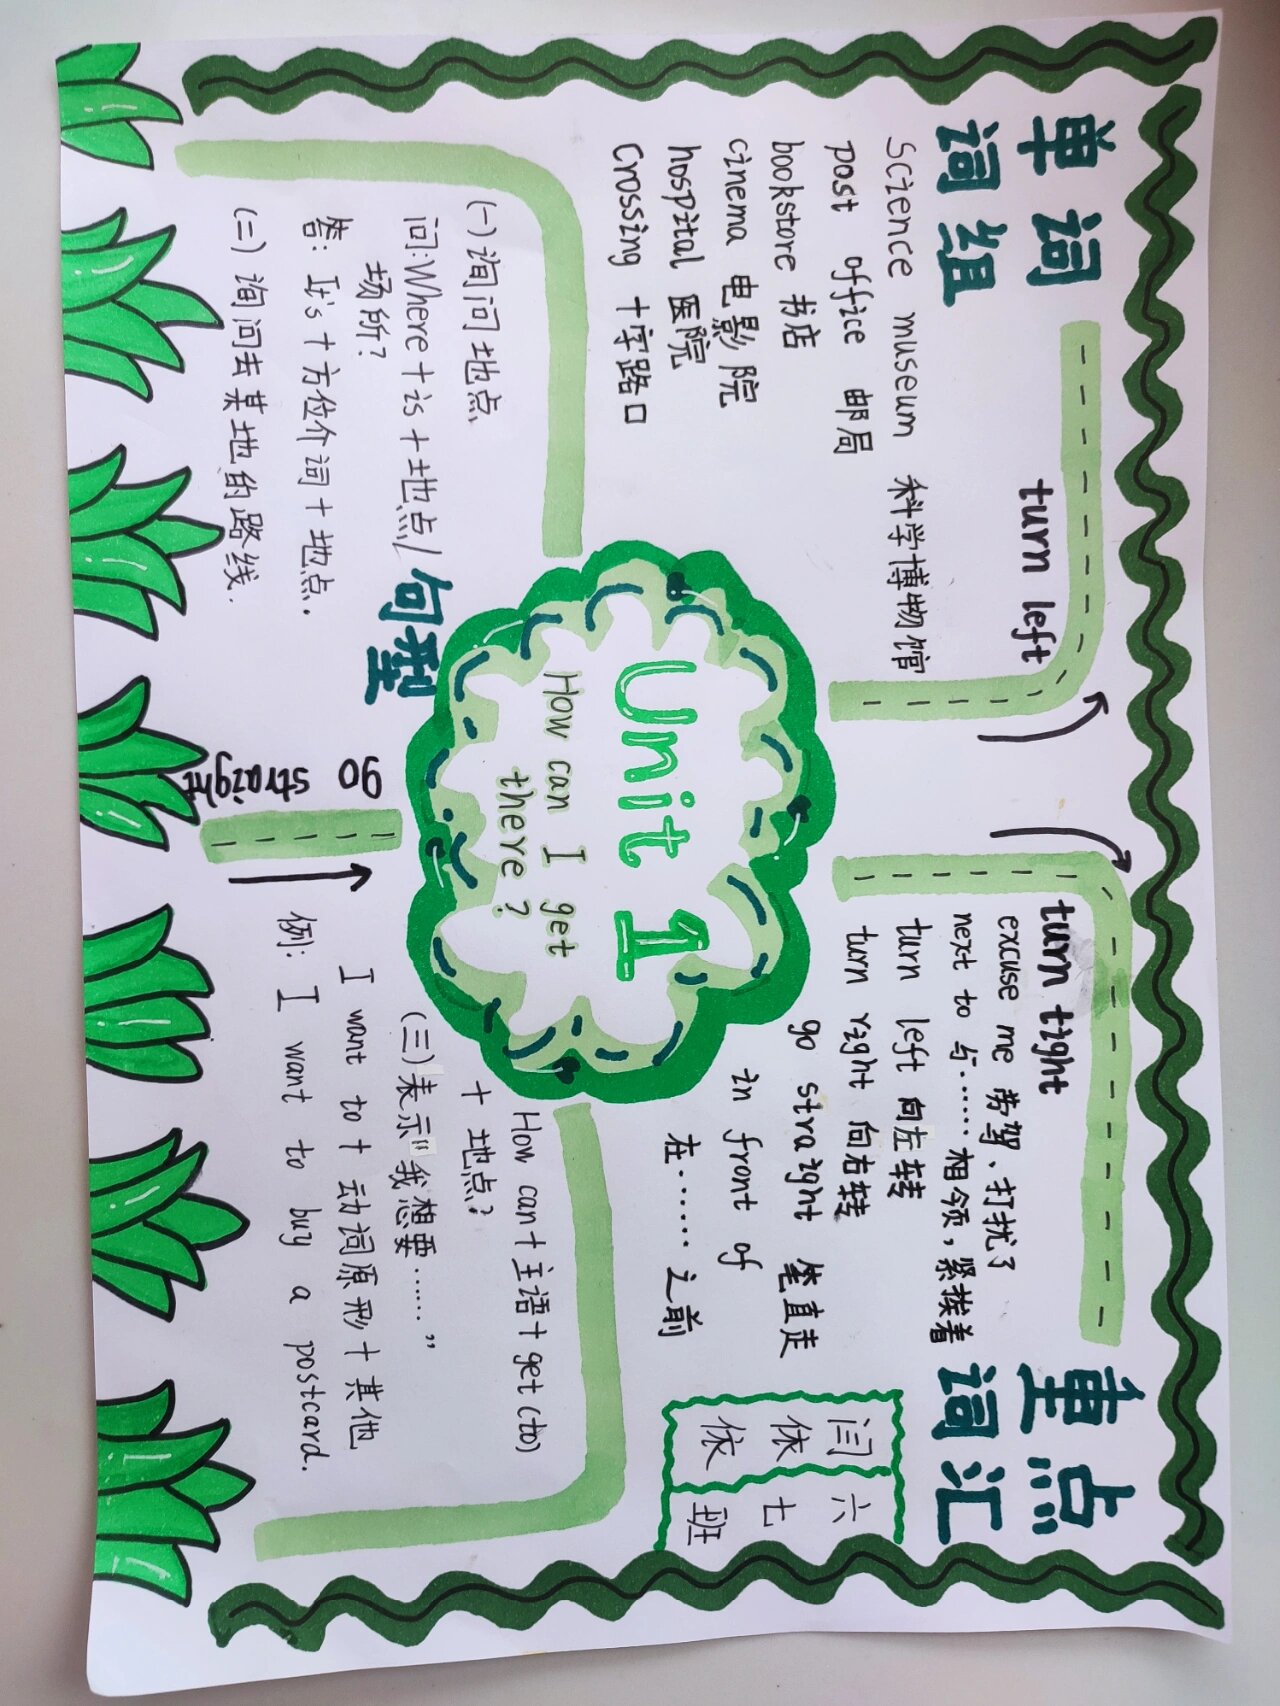 单词
词组
science museum 科学博物馆
post office 邮局
bookstore 书店
cinema 电影院
hospital 医院
Crossing 十字路口
turn left
turn tight
重点
词汇
excuse me 劳驾、打扰了
next to 与……相领,紧挨着
turn left 向左转
turn right 向右转
go straight 笔直走
in front of
在……之前
闫依依
六七班
Unit 1
How can I get
there?
句型
(一)询问地点
问:Where+is+地点/
场所?
答: It's+方位介词+地点.
(二)询问去某地的路线.
go
straight
How can+主语+get(to)
+地点?
(三)表示“我想要……”
I want to+动词原形+其他
例: I want to buy a postcard.